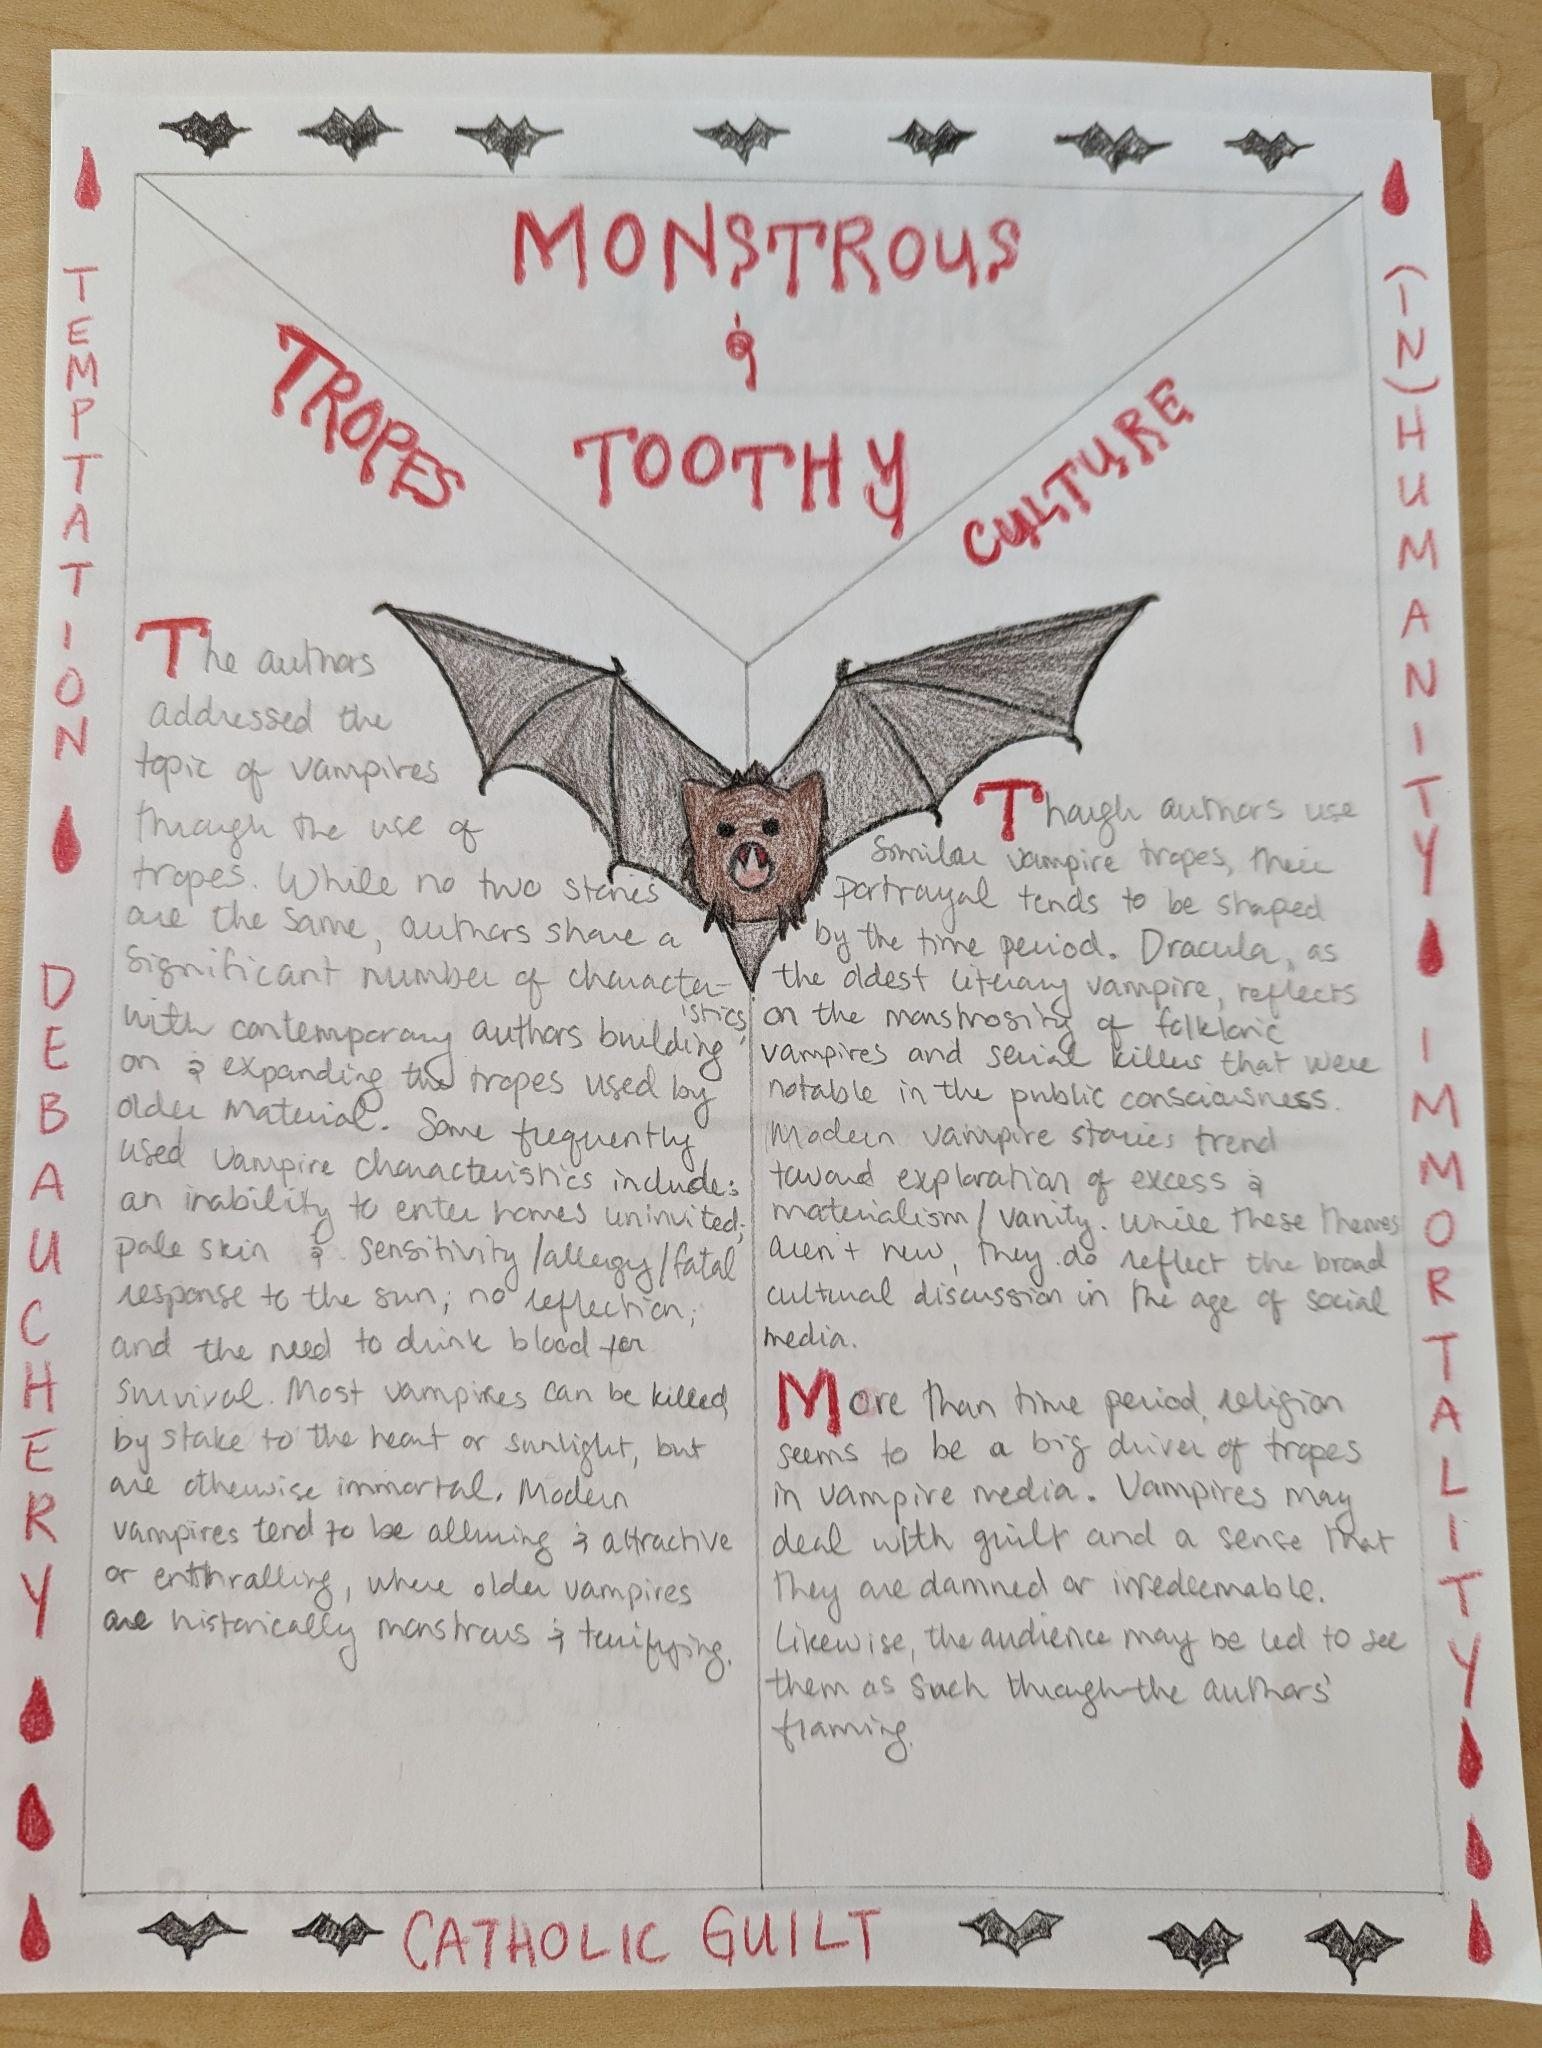 MONSTROUS
&
TOOTHY
TROPES
CULTURE
TEMPTATION
DEBAUCHERY
The authors
addressed the
topic of vampires
through the use of
tropes. While no two stories
are the same, authors share a
significant number of character-
istics,
with contemporary authors building
on & expanding the tropes used by
older material. Some frequently
used vampire characteristics include:
an inability to enter homes uninvited;
pale skin & sensitivity/allergy/fatal
response to the sun; no reflection;
and the need to drink blood for
survival. Most vampires can be killed
by stake to the heart or sunlight, but
are otherwise immortal. Modern
vampires tend to be alluring & attractive
or enthralling, where older vampires
are historically monstrous & terrifying.
Though authors use
similar vampire tropes, their
portrayal tends to be shaped
by the time period. Dracula, as
the oldest literary vampire, reflects
on the monstrosity of folkloric
vampires and serial killers that were
notable in the public consciousness.
Modern vampire stories trend
toward exploration of excess &
materialism/vanity. While these themes
aren't new, they do reflect the broad
cultural discussion in the age of social
media.
More than time period, religion
seems to be a big driver of tropes
in vampire media. Vampires may
deal with guilt and a sense that
they are damned or irredeemable.
Likewise, the audience may be led to see
them as such through the authors'
framing.
(IN)HUMANITY
IMMORTALITY
CATHOLIC GUILT